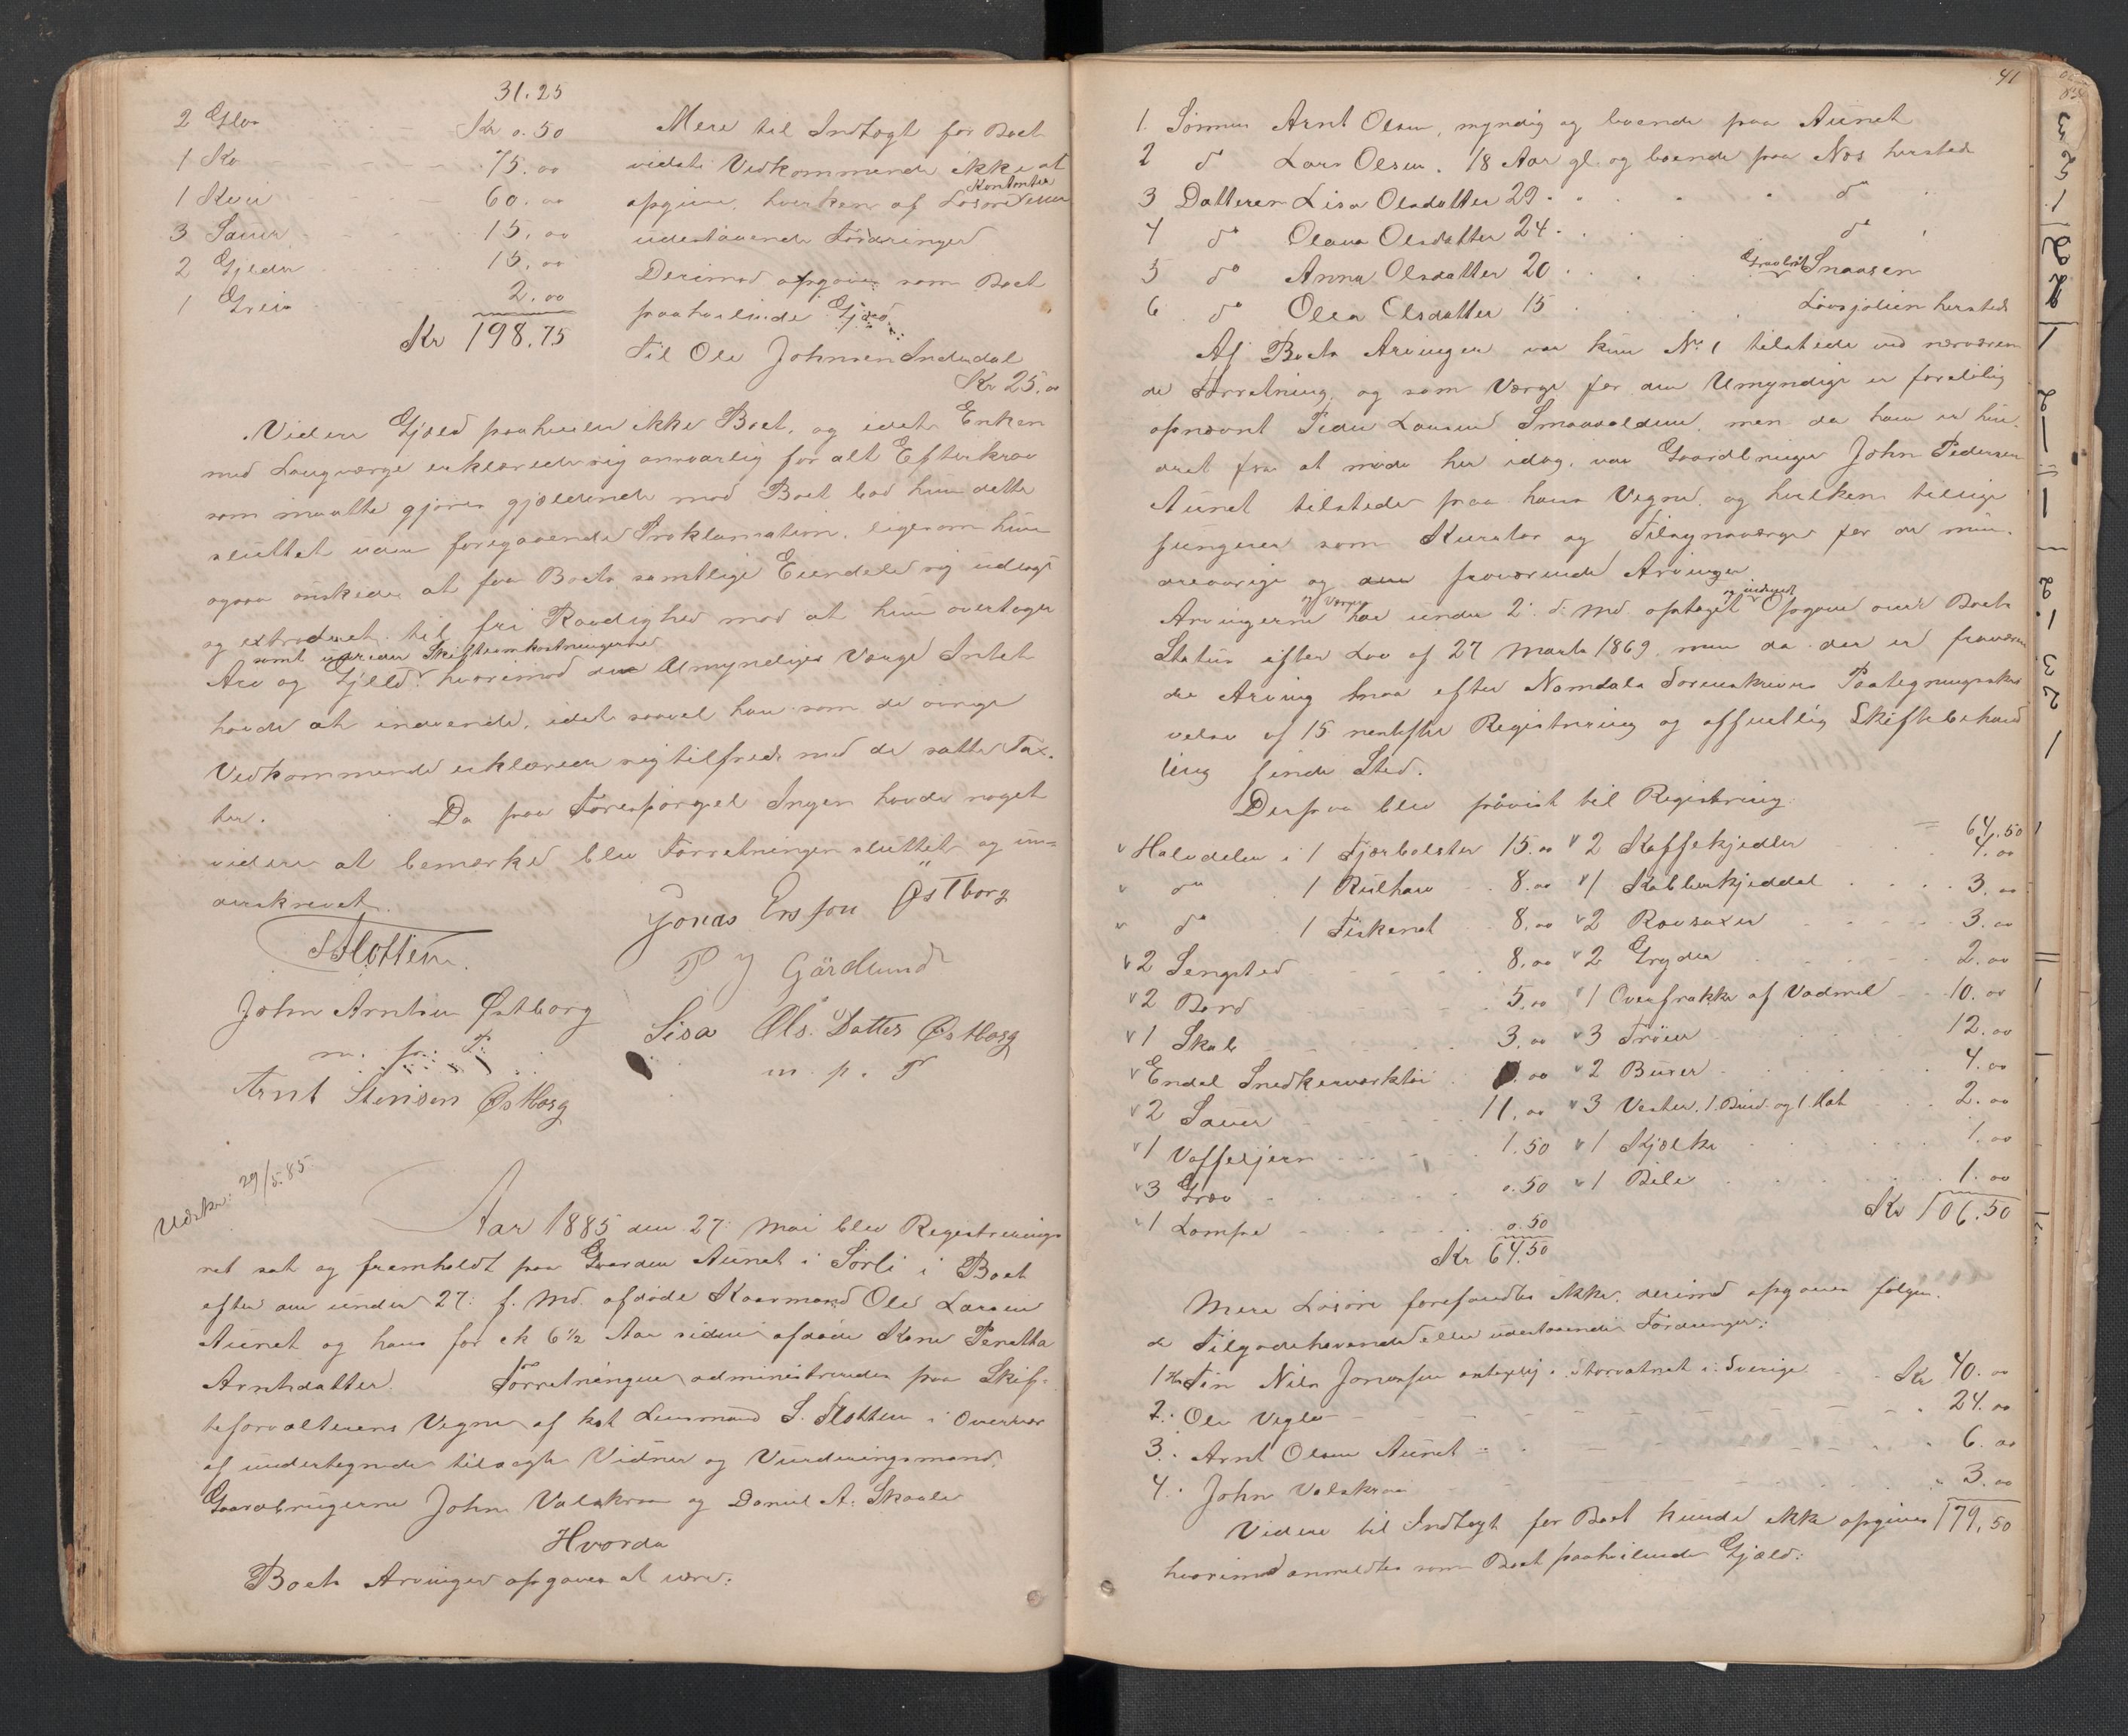 31.25
2 Glas Kr 0.50
1 Ko 75.00
1 Kvie 60.00
3 Sauer 15.00
2 Gjeder 15.00
1 Greis 2.00
Kr 198.75
Mere til Indtægt for Boet
vidste Vedkommende ikke at
opgive, hverken af Løsøre Kontanter eller
udestaaende Fordringer
Derimod opgaves som Boet
paahvilende Gjæld:
Til Ole Johnsen Indedal
Kr 25.00
Videre Gjæld paahviler ikke Boet, og idet Enken
med Laugværge erklærede sig ansvarlig for alt Efterkrav
som maatte gjøres gjældende mod Boet bad hun dette
sluttet uden foregaaende Proklamation, ligesom hun
ogsaa ønskede at faa Boets samtlige Eiendele sig udlagt
og extraderet til fri Raadighed mod at hun overtager
samt udreder Skifteomkostningerne
Arv og Gjæld, hvorimod den Umyndiges Værge Intet
havde at indvende, idet saavel han som de øvrige
Vedkommende erklærede sig tilfreds med de satte Tax-
ter. Da paa Forespørgsel Ingen havde noget
videre at bemærke blev Forretningen sluttet og un-
derskrevet.
S Slotten.
Jonas Ersson Østborg
P J Gärdlund
John Arntsen Østborg
m. p. P.
Lisa Ols. Datter Østborg
m. p. P
Arnt Stensen Østborg
Udskr: 29/5.85.
Aar 1885 den 27: Mai blev Registrerings
ret sat og fremholdt paa Gaarden Aunet i Sørli i Boet
efter den under 27: f. Md. afdøde Kaarmand Ole Larsen
Aunet og hans for ck 6½ Aar siden afdøde Kone Peratta
Arntsdatter. Forretningen administreredes paa Skif-
teforvalterens Vegne af kst Lensmand S. Slotten i Overvær
af undertegnede tilsagte Vidner og Vurderingsmænd,
Gaardbrugerne John Valskraa og Daniel A. Skaale
Hvorda
Boets Arvinger opgaves at være:
41
1. Sønnen Arnt Olsen, myndig og boende paa Aunet
2 do Lars Olsen, 18 Aar gl. og boende paa Næs hersteds
3 Datteren Lisa Olsdatter 29 do
4 do Olava Olsdatter 24 do
5 do Anna Olsdatter 20 Snaasen
6 do Olea Olsdatter 15 Løvsjølien hersteds
Af Boets Arvinger var kun No 1 tilstede ved nærværen-
de Forretning, og som Værge for den Umyndige er foreløbig
opnævnt Peder Larsen Smaavolden, men da han er hin-
dret fra at møde her idag, var Gaardbruger John Pedersen
Aunet tilstede paa hans Vegne, og hvilken tillige
fungerer som Kurator og Tilsynsværge for de min-
dreaarige og den fraværende Arvinger
Arvingerne og Værgen har under 2: d: Md. optaget og indsendt Opgave over Boets
Status efter Lov af 27 Marts 1869, men da der er fraværen-
de Arving maa efter Namdals Sorenskriveris Paategningsskri-
velse af 15 næstefter Registrering og offentlig Skiftebehand-
ling finde Sted.
Derpaa blev påvist til Registrering:
Halvdelen i 1 Fjærbolster 15.00
do 1 Rulhav 8.00
do 1 Fiskenot 8.00
2 Sengsted 8.00
2 Bord 5.00
1 Skab 3.00
Endel Snedkerværktøi .00
2 Sauer 11.00
1 Vaffeljern 1.50
3 Græv 0.50
1 Lampe 0.50
Kr 64.50
64.50
2 Kaffekjedler 4.00
1 Kobberkjeddel 3.00
2 Rævsaxer 3.00
2 Gryder 2.00
1 Overfrakke af Vadmel 10.00
3 Trøier 12.00
2 Buxer 4.00
3 Vester, 1 Bind og 1 Hat 2.00
1 Kjælke 1.00
1 Bile 1.00
Kr 106.50
Mere Løsøre forefandtes ikke, derimod opgaves følgen-
de Tilgodehavende eller udestaaende Fordringer:
1 Hos Nils Jonassen Storvatnet i Sverige Kr 40.00
2: Ole Vegla 24.00
3: Arnt Olsen Aunet 6.00
4: John Valskraa 3.00
Videre til Indtægt for Boet kunde ikke opgives 179,50
hvorimod anmeldtes som Boet paahvilende Gjæld: